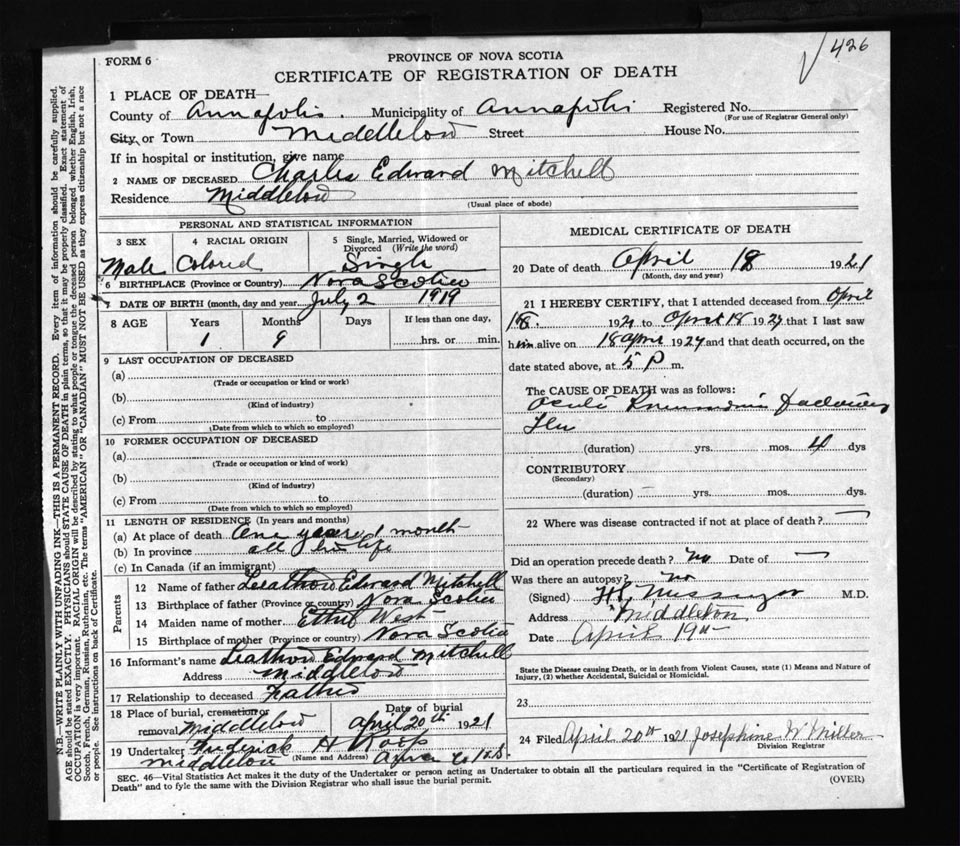 426
FORM 6
PROVINCE OF NOVA SCOTIA
CERTIFICATE OF REGISTRATION OF DEATH
1 PLACE OF DEATH—
County of Annapolis. Municipality of Annapolis Registered No.
(For use of Registrar General only)
City, or Town Middleton Street House No.
If in hospital or institution, give name
2 NAME OF DECEASED Charles Edward Mitchell
Residence Middleton
(Usual place of abode)
PERSONAL AND STATISTICAL INFORMATION
3 SEX 4 RACIAL ORIGIN 5 Single, Married, Widowed or Divorced (Write the word)
Male Colored Single
6 BIRTHPLACE (Province or Country) Nova Scotia
7 DATE OF BIRTH (month, day and year) July 2 1919
8 AGE Years Months Days If less than one day,
1 9 hrs. or min.
9 LAST OCCUPATION OF DECEASED
(a)
(Trade or occupation or kind or work)
(b)
(Kind of industry)
(c) From to
(Date from which to which so employed)
10 FORMER OCCUPATION OF DECEASED
(a)
(Trade or occupation or kind of work)
(b)
(Kind of industry)
(c) From to
(Date from which to which so employed)
11 LENGTH OF RESIDENCE (In years and months)
(a) At place of death One year 1 month
(b) In province all his life
(c) In Canada (if an immigrant)
Parents
12 Name of father Edward Mitchell
13 Birthplace of father (Province or country) Nova Scotia
14 Maiden name of mother Ethel West
15 Birthplace of mother (Province or country) Nova Scotia
16 Informant's name Edward Mitchell
Address Middleton
17 Relationship to deceased Father
18 Place of burial, cremation or removal Middleton Date of burial April 20th 1921
19 Undertaker Frederick H
(Name and Address)
Middleton
MEDICAL CERTIFICATE OF DEATH
20 Date of death April 18 1921
(Month, day and year)
21 I HEREBY CERTIFY, that I attended deceased from April
18. 1921 to April 18 1921 that I last saw
him alive on 18 April 1921 and that death occurred, on the
date stated above, at 5 P m.
The CAUSE OF DEATH was as follows:
Flu
(duration) yrs. mos. 4 dys
CONTRIBUTORY
(Secondary)
(duration) yrs. mos. dys.
22 Where was disease contracted if not at place of death?
Did an operation precede death? no Date of
Was there an autopsy? no
(Signed) M.D.
Address Middleton
Date April 19
State the Disease causing Death, or in death from Violent Causes, state (1) Means and Nature of
Injury, (2) whether Accidental, Suicidal or Homicidal.
23
24 Filed April 20th 1921 Josephine W Miller
Division Registrar
SEC. 46—Vital Statistics Act makes it the duty of the Undertaker or person acting as Undertaker to obtain all the particulars required in the "Certificate of Registration of
Death" and to fyle the same with the Division Registrar who shall issue the burial permit.
(OVER)
N.B.—WRITE PLAINLY WITH UNFADING INK—THIS IS A PERMANENT RECORD. Every item of information should be carefully supplied.
AGE should be stated EXACTLY. PHYSICIANS should STATE CAUSE OF DEATH in plain terms, so that it may be properly classified. Exact statement of
OCCUPATION is very important. RACIAL ORIGIN will be described by stating to what people or tongue the deceased person belonged whether English, Irish,
Scotch, French, German, Russian, Ruthenian, etc. The terms "AMERICAN" OR "CANADIAN" MUST NOT BE USED as they express citizenship but not a race
or people. See instructions on back of Certificate.